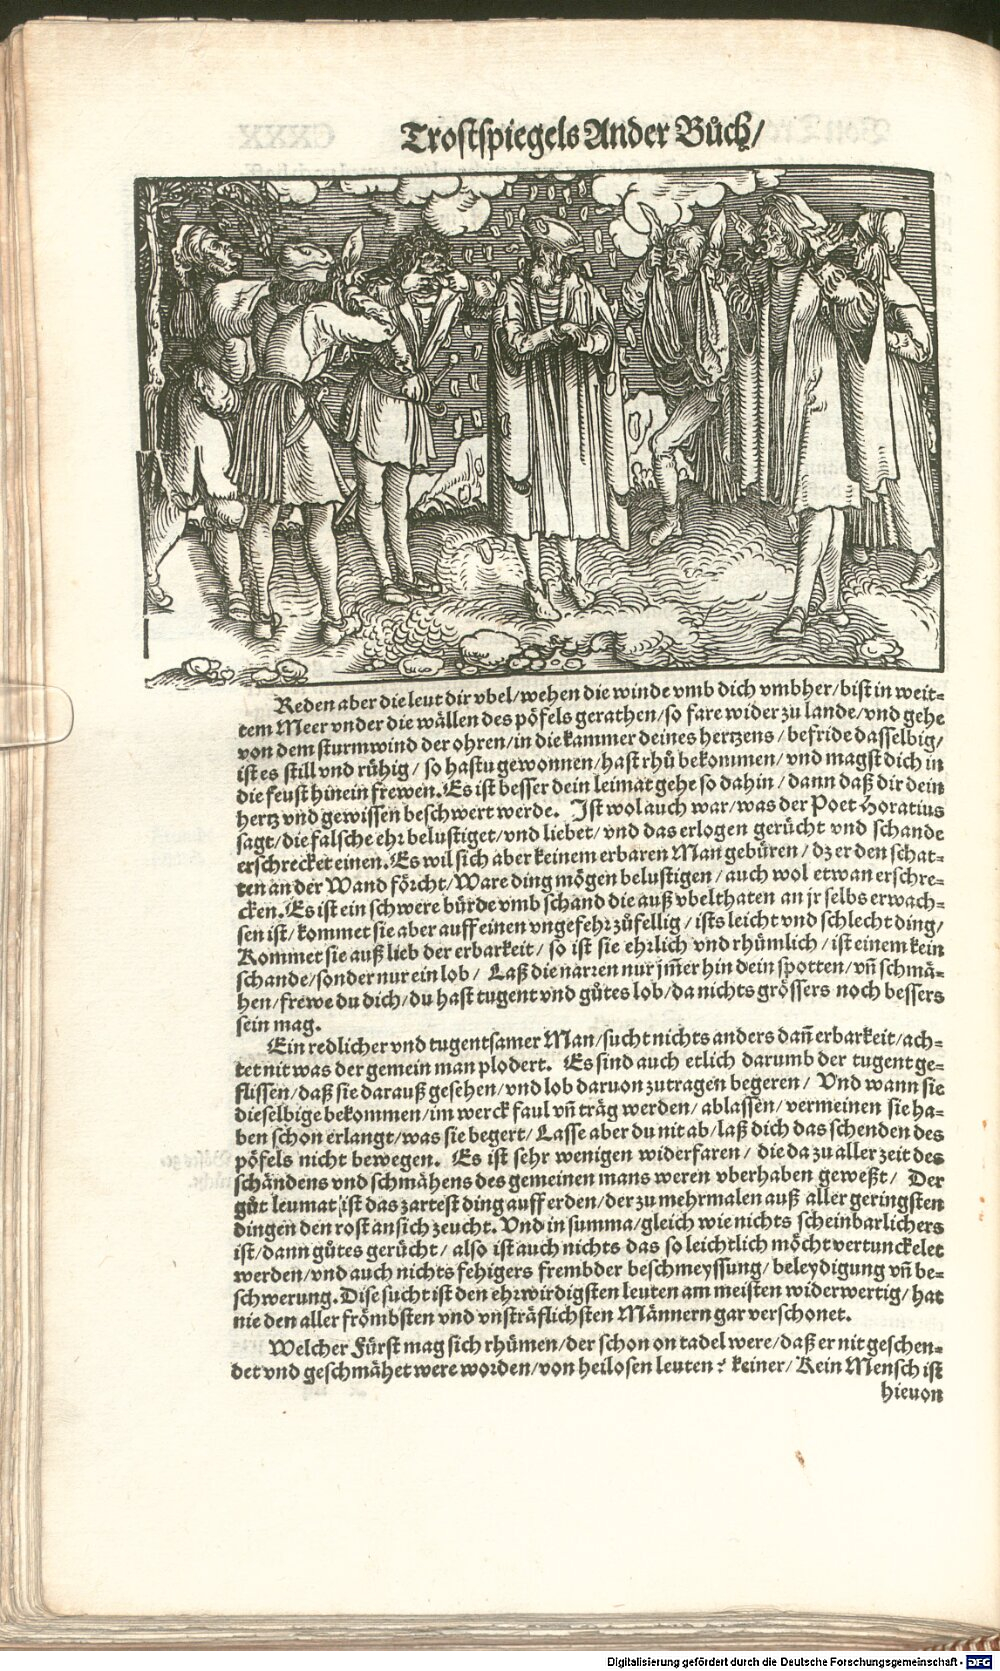 Trostspiegels Ander Bůch/
Reden aber die leut dir vbel/wehen die winde vmb dich vmbher/bist in weit-
tem Meer vnder die wällen des pöfels gerathen/so fare wider zu lande/vnd gehe
von dem sturmwind der ohren/in die kammer deines hertzens/befride dasselbig/
ist es still vnd rühig/so hastu gewonnen/hast rhů bekommen/vnd magst dich in
die feust hinein frewen. Es ist besser dein leimat gehe so dahin/dann daß dir dein
hertz vnd gewissen beschwert werde. Ist wol auch war/was der Poet Horatius
sagt/die falsche ehr belustiget/vnd liebet/vnd das erlogen gerücht vnd schande
erschrecket einen. Es wil sich aber keinem erbaren Man gebüren/dz er den schat-
ten an der Wand förcht/Ware ding mögen belustigen/auch wol etwan erschre-
cken. Es ist ein schwere bürde vmb schand die auß vbelthaten an jr selbs erwach-
sen ist/kommet sie aber auff einen vngefehr zůfellig/ists leicht vnd schlecht ding/
Kommet sie auß lieb der erbarkeit/so ist sie ehrlich vnd rhümlich/ist einem kein
schande/sonder nur ein lob/Laß die narren nur jm̃er hin dein spotten/vñ schmä-
hen/frewe du dich/du hast tugent vnd gůtes lob/da nichts grössers noch bessers
sein mag.
Ein redlicher vnd tugentsamer Man/sucht nichts anders dañ erbarkeit/ach-
tet nit was der gemein man plodert. Es sind auch etlich darumb der tugent ge-
flissen/daß sie darauß gesehen/vnd lob daruon zutragen begeren/Vnd wann sie
dieselbige bekommen/im werck faul vñ träg werden/ablassen/vermeinen sie ha-
ben schon erlangt/was sie begert/Lasse aber du nit ab/laß dich das schenden des
pöfels nicht bewegen. Es ist sehr wenigen widerfaren/die da zu aller zeit des
schändens vnd schmähens des gemeinen mans weren vberhaben geweßt/Der
gůt leumat ist das zartest ding auff erden/der zu mehrmalen auß aller geringsten
dingen den rost an sich zeucht. Vnd in summa/gleich wie nichts scheinbarlichers
ist/dann gůtes gerücht/also ist auch nichts das so leichtlich möcht vertunckelet
werden/vnd auch nichts fehigers frembder beschmeyssung/beleydigung vñ be-
schwerung. Dise sucht ist den ehrwirdigsten leuten am meisten widerwertig/hat
nie den aller frömbsten vnd vnsträflichsten Männern gar verschonet.
Welcher Fürst mag sich rhümen/der schon on tadel were/daß er nit geschen-
det vnd geschmähet were worden/von heilosen leuten? keiner/Kein Mensch ist
hieuon
Digitalisierung gefördert durch die Deutsche Forschungsgemeinschaft - DFG